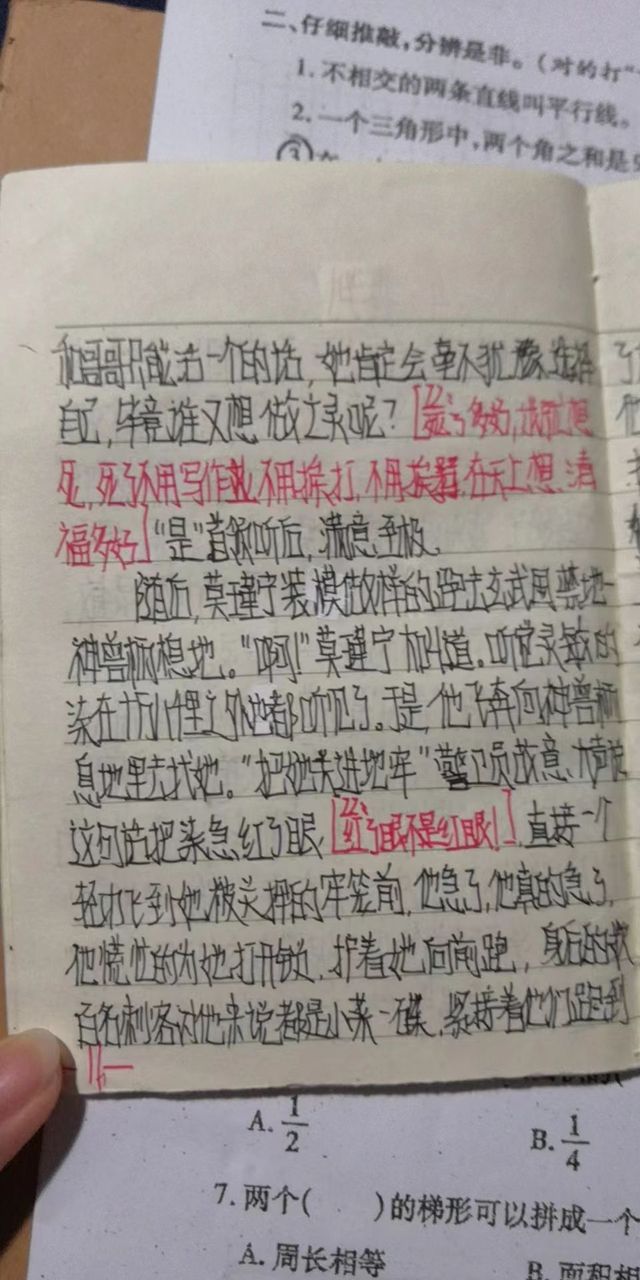 二、仔细推敲，分辨是非。（对的打“
1. 不相交的两条直线叫平行线。
2. 一个三角形中，两个角之和是
③在
和哥哥只能活一个的话，她肯定会毫不犹豫选择
自己，毕竟谁又想做亡灵呢？
多好，我就想
死，死了不用写作业，不用挨打，不用挨骂，在天上想清
福多好] “是”首领听后，满意至极。
随后，莫瑾宁装模做样的跑去玄武国禁地—
神兽栖息地。“啊！”莫瑾宁大叫道。听觉灵敏的
染在十万八千里之外她都听见了。于是，他飞奔向神兽栖
息地里去找她。“把她关进地牢”警卫员故意大声说
这句话把染急红了眼[红了眼不是红眼！]，直接一个
轻功飞到她被关押的牢笼前，他急了，他真的急了，
他慌忙的为她打开锁，护着她向前跑，身后的数
百名刺客对他来说都是小菜一碟，紧接着他们跑到
A. 1/2
B. 1/4
7. 两个（ ）的梯形可以拼成一个
A. 周长相等
B. 面积相